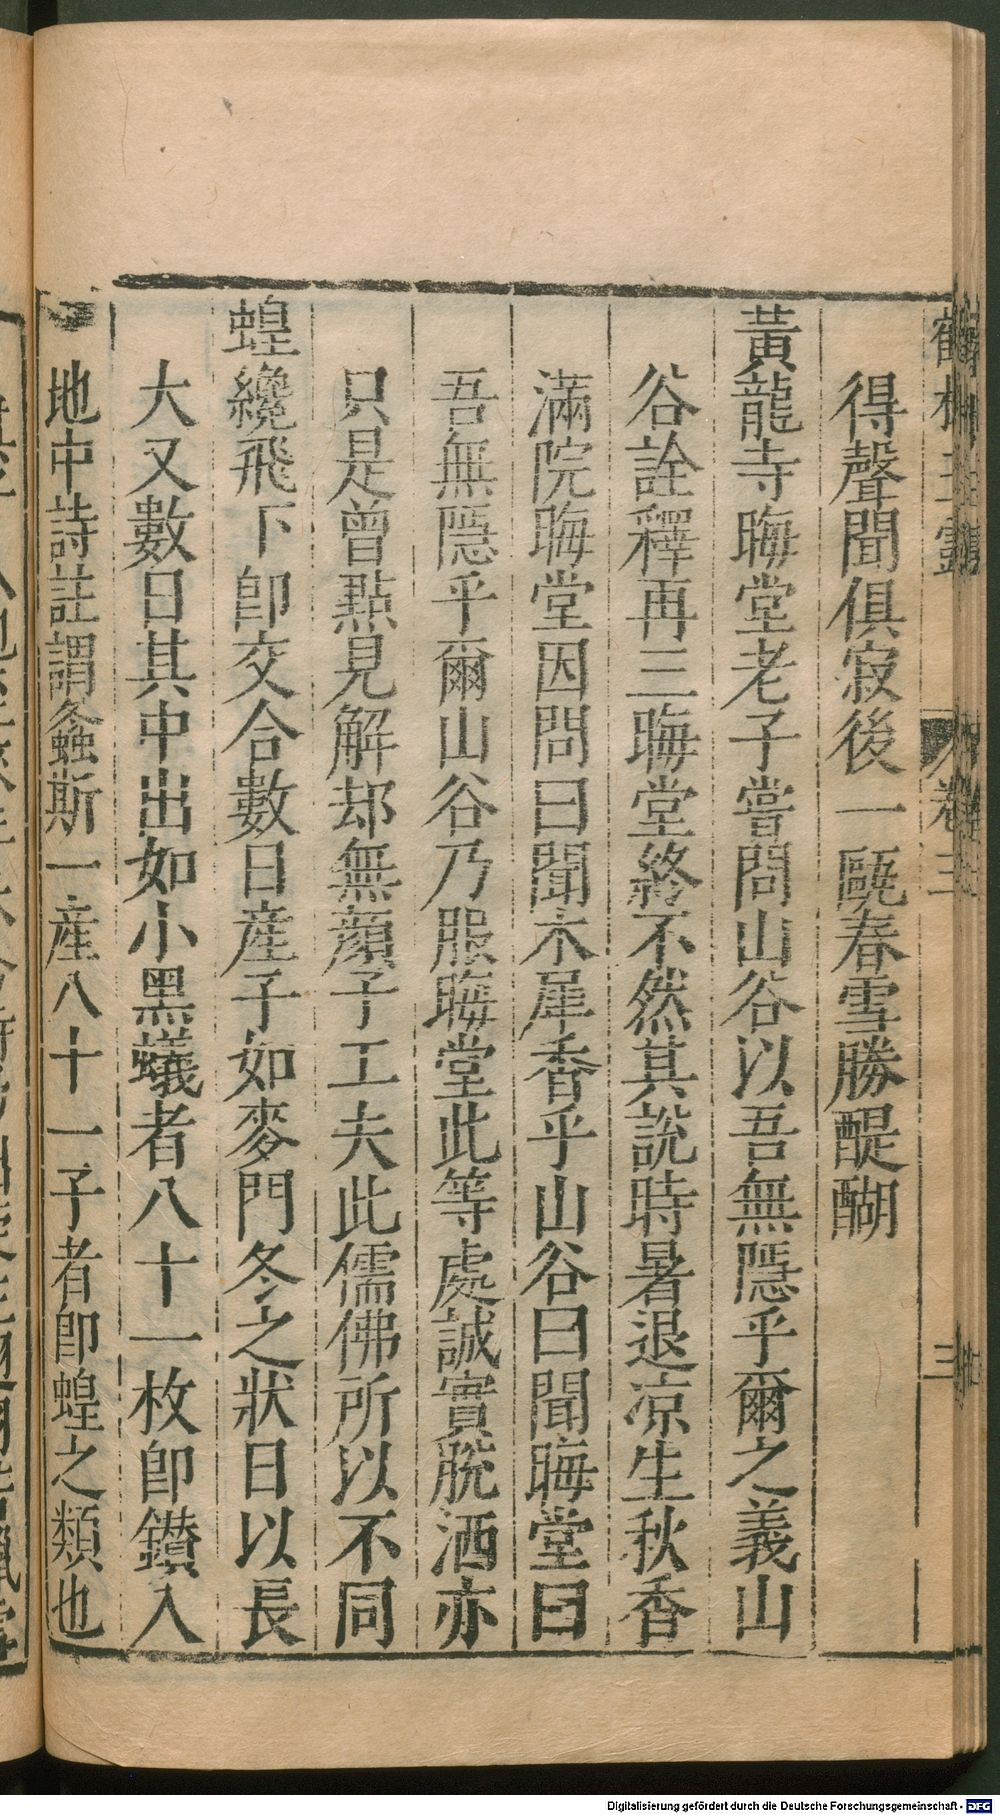 得聲聞俱寂後一甌春雪勝醍醐
黃龍寺晦堂老子嘗問山谷以吾無隱乎爾之義山
谷詮釋再三晦堂終不然其說時暑退凉生秋香
滿院晦堂因問曰聞木犀香乎山谷曰聞晦堂曰
吾無隱乎爾山谷乃服晦堂此等處誠實脫洒亦
只是曾點見解却無顏子工夫此儒佛所以不同
蝗纔飛下卽交合數日產子如麥門冬之狀日以長
大又數日其中出如小黑蟻者八十一枚卽鑚入
地中詩註謂螽斯一產八十一子者卽蝗之類也
卷三
三
Digitalisierung gefördert durch die Deutsche Forschungsgemeinschaft - DFG